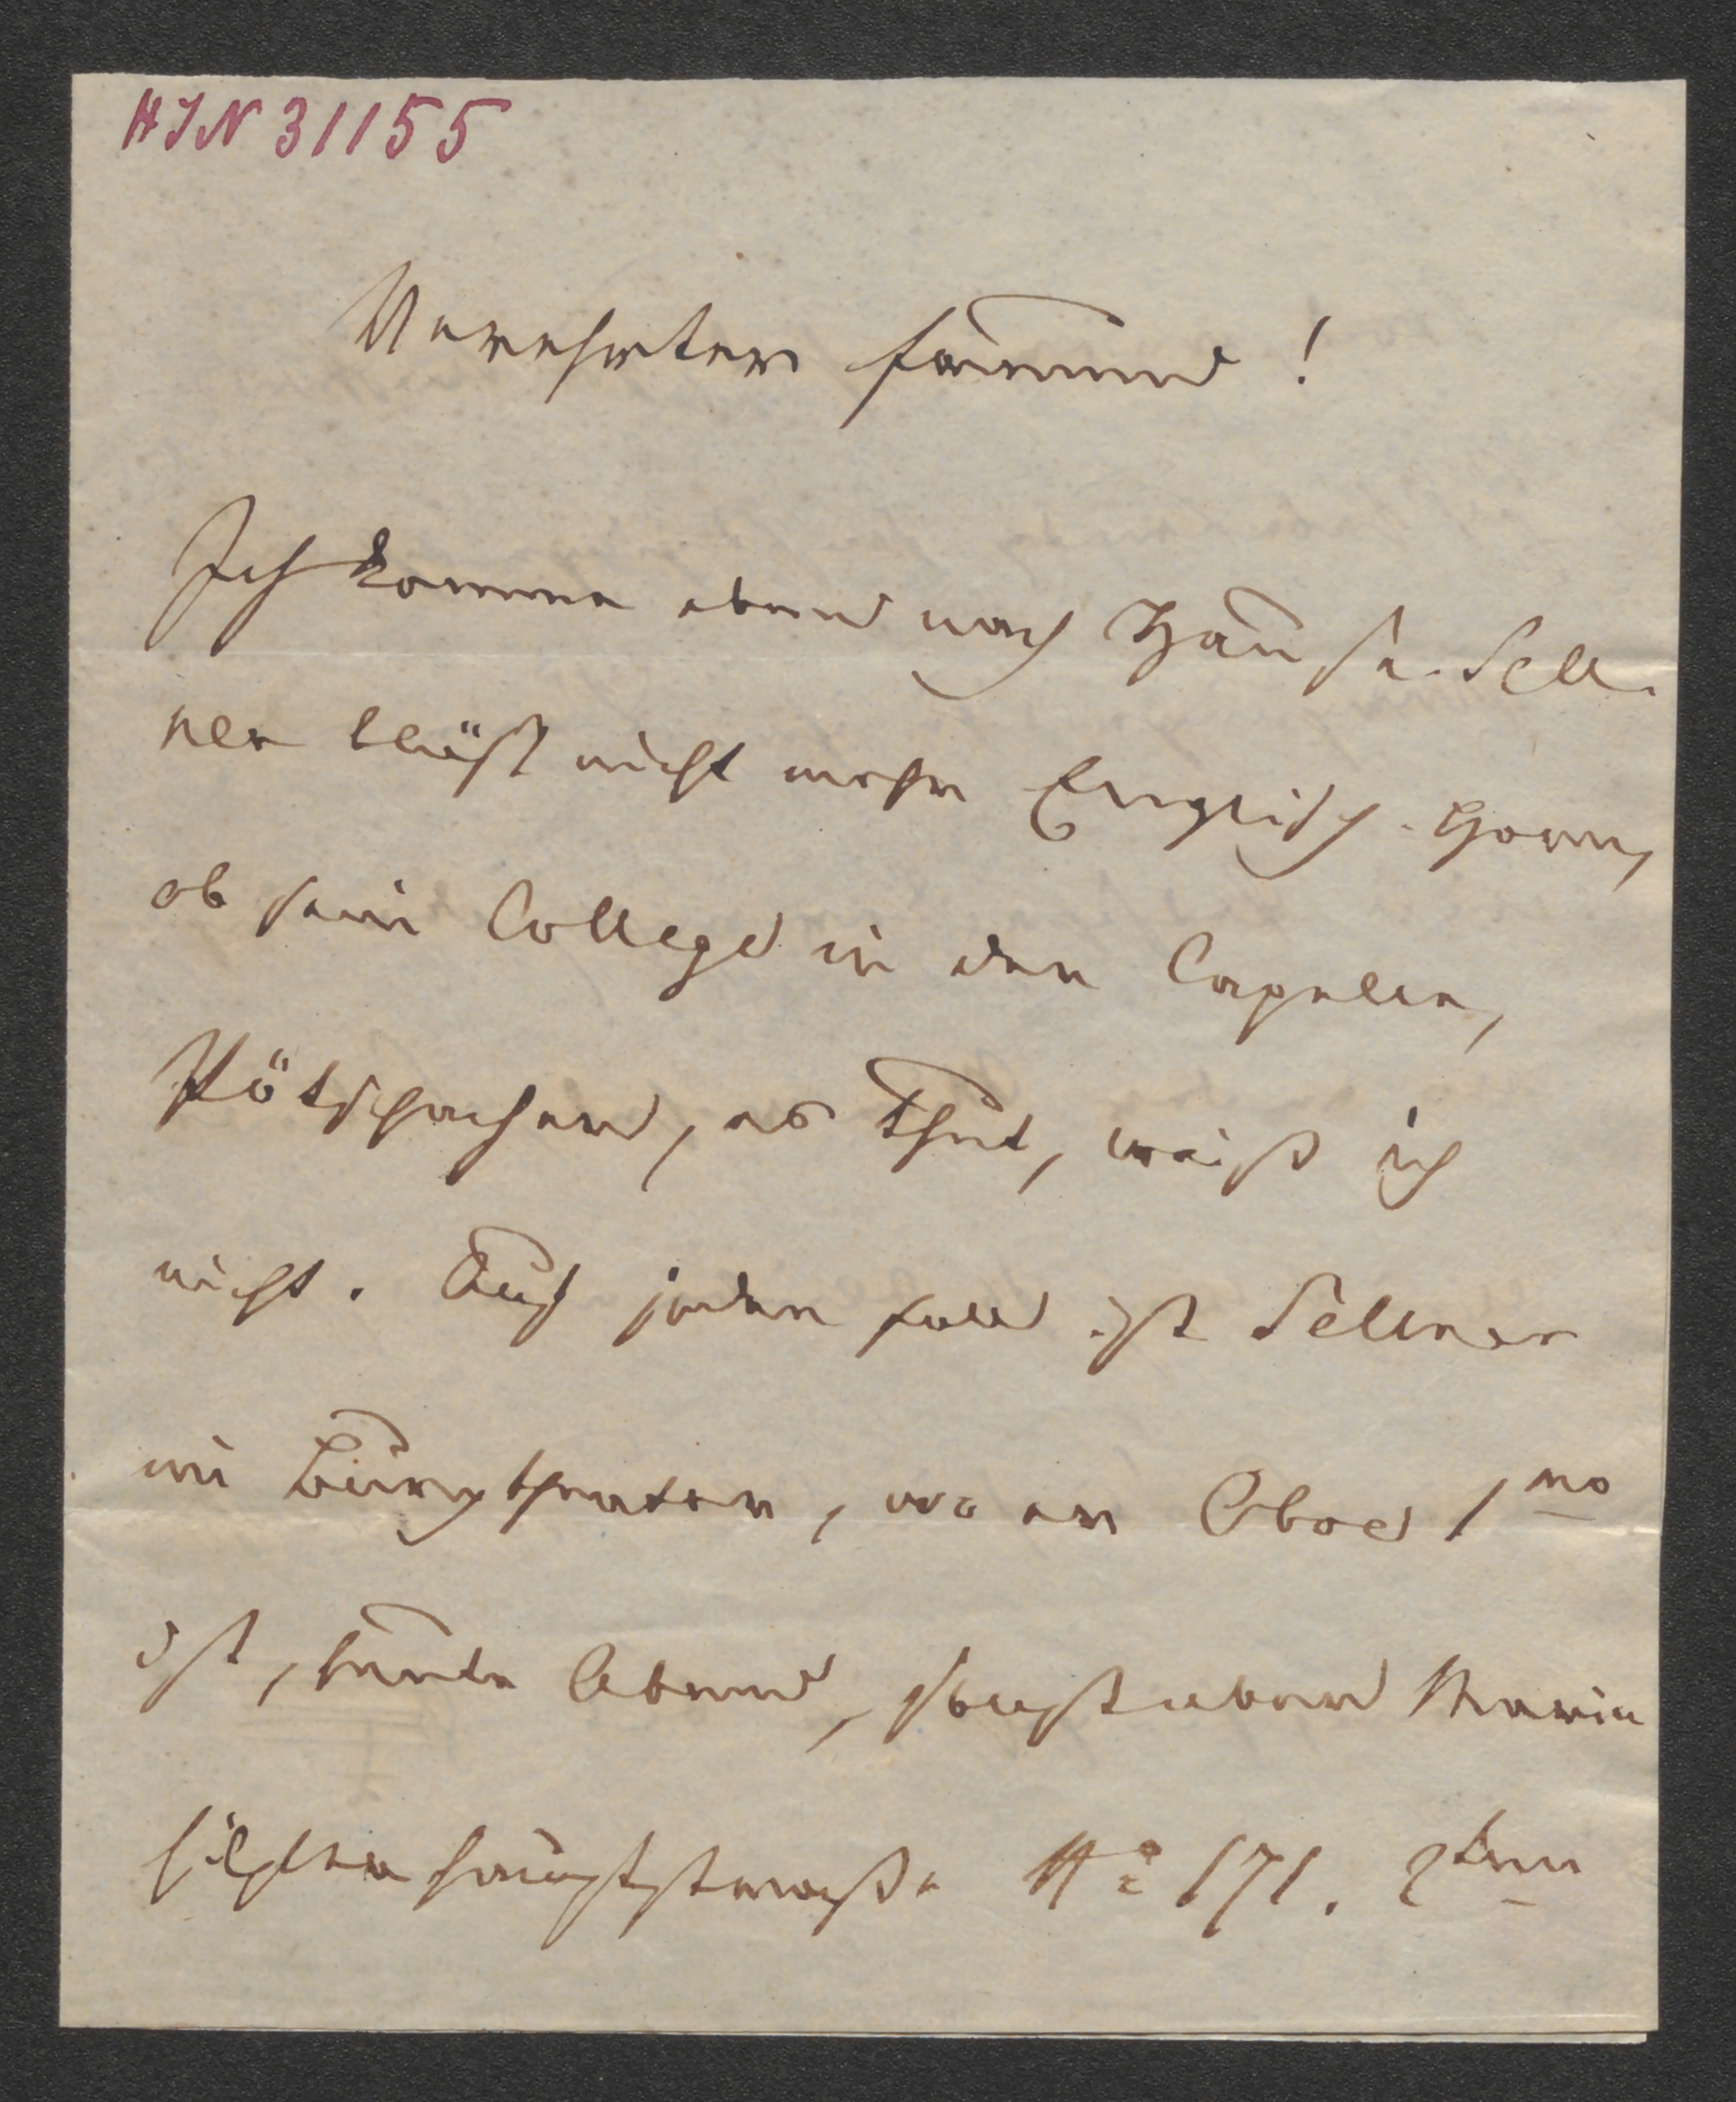 HIN 31155
Verehrter Freund!
Ich komme eben nach Hause. Sell-
ner bläst nicht mehr Englisch-Horn,
ob sein College in der Capelle,
Pötschacher, es thut, weiß ich
nicht. Auf jeden Fall ist Sellner
im Burgtheater, wo er Oboe 1mo
ist, heute Abend, sonst aber Maria
hilfer Hauptstraße No 171. 2ten